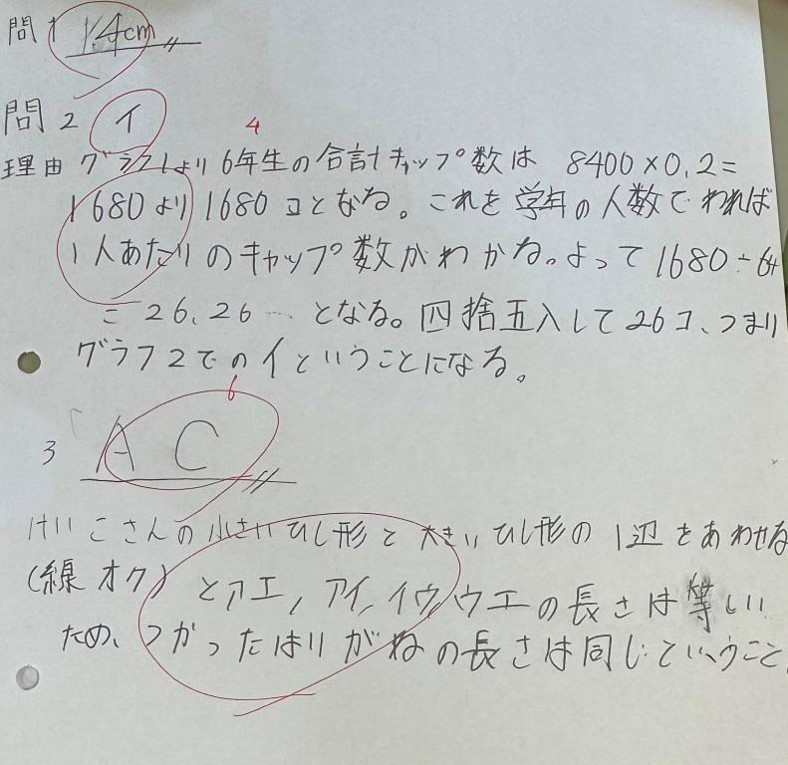 問1 1.4cm
問2 イ
4
理由 グラフ1より6年生の合計キャップ数は 8400×0.2=
1680より1680コとなる。これを学年の人数でわれば
1人あたりのキャップ数がわかる。よって1680÷64
= 26.26… となる。四捨五入して26コ、つまり
グラフ2でのイということになる。
6
3 A C
けいこさんの小さいひし形と大きいひし形の1辺をあわせる
(線オク)とアエ,アイ,イウ,ウエの長さは等しい
ため、つかったはりがねの長さは同じということ